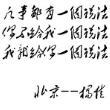 凡事都有一個說法
你不給我一個說法
我就給你一個說法
北京——楊佳